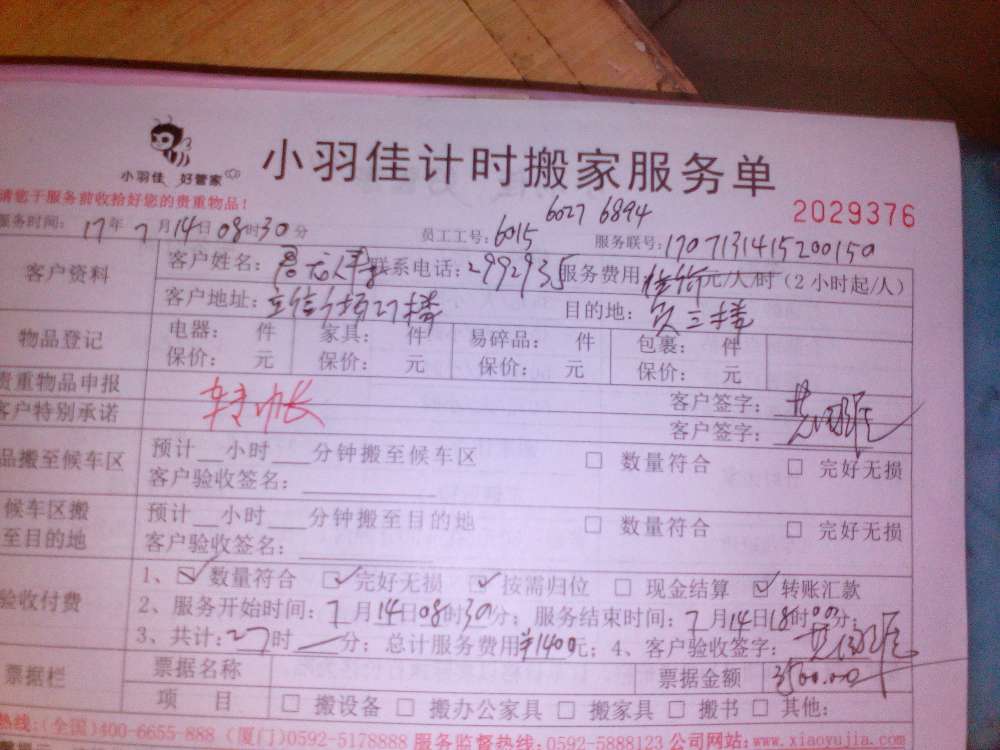 小羽佳 好管家
小羽佳计时搬家服务单
请您于服务前收拾好您的贵重物品！
6027 6894
2029376
服务时间：17年7月14日08时30分 员工工号：6015 服务联号：1707131415200150
客户资料
客户姓名： 联系电话：2992935 服务费用 元/人/时（2小时起/人）
客户地址： 27楼 目的地： 三楼
物品登记
电器： 件 家具： 件 易碎品： 件 包裹： 件
保价： 元 保价： 元 保价： 元 保价： 元
贵重物品申报 客户签字：
转帐
客户特别承诺 客户签字：
品搬至候车区
预计__小时___分钟搬至候车区 □ 数量符合 □ 完好无损
客户验收签名：
候车区搬至目的地
预计__小时___分钟搬至目的地 □ 数量符合 □ 完好无损
客户验收签名：
验收付费
1、☑数量符合 ☑完好无损 ☑按需归位 □ 现金结算 ☑转账汇款
2、服务开始时间：7月14日08时30分；服务结束时间：7月14日18时00分；
3、共计：27时 分；总计服务费用¥1400元；4、客户验收签字：
票据栏
票据名称 票据金额 3500.00
项 目 □ 搬设备 □ 搬办公家具 □ 搬家具 □ 搬书 □ 其他：
热线：(全国)400-6655-888 (厦门)0592-5178888 服务监督热线：0592-5888123 公司网站：www.xiaoyujia.com